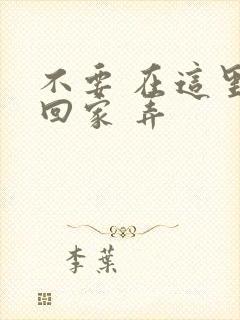 不要 在這里
回家 弄
李葉